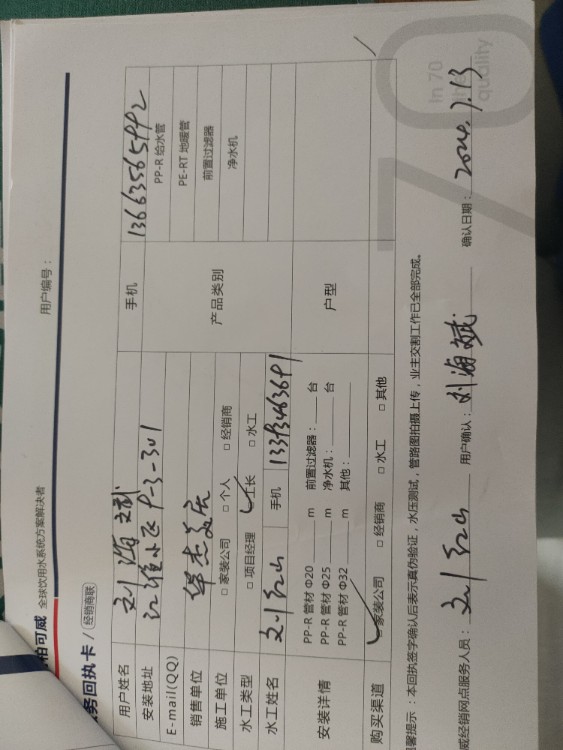 柏可威 全球饮用水系统方案解决者
用户编号：
务回执卡 / 经销商联
用户姓名 刘海斌 手机 13663565992
安装地址 江淮小区 9-3-301 产品类别 PP-R 给水管
E-mail(QQ) PE-RT 地暖管
销售单位 前置过滤器
施工单位 □ 家装公司 □ 个人 □ 经销商 净水机
水工类型 □ 项目经理 工长 □ 水工
水工姓名 刘红山 手机 13393463691
安装详情 PP-R 管材 Φ20 m 前置过滤器： 台 户型
PP-R 管材 Φ25 m 净水机： 台
PP-R 管材 Φ32 m 其他：
购买渠道 家装公司 □ 经销商 □ 水工 □ 其他
馨提示：本回执签字确认后表示真伪验证，水压测试，管路图拍摄上传，业主交割工作已全部完成。
威经销网点服务人员： 刘红山 用户确认： 刘海斌 确认日期： 2024.7.13
70
In 70
quality